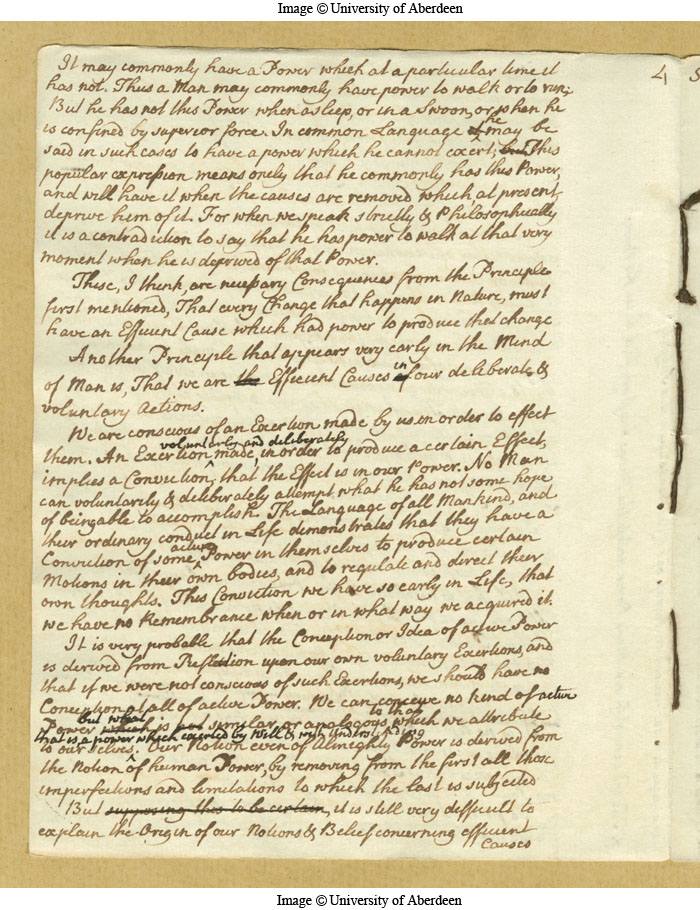 Image © University of Aberdeen
4
It may commonly have a Power which at a particular time it
has not. Thus a Man may commonly have power to walk or to run;
But he has not this Power when asleep, or in a Swoon, or when he
is confined by superior force. In common Language he may be
said in such cases to have a power which he cannot exert; but This
popular expression means onely that he commonly has this Power,
and will have it when the causes are removed which at present
deprive him of it. For when we speak strictly & Philosophically
it is a contradiction to say that he has power to walk at that very
moment when he is deprived of that Power.
These, I think, are necessary Consequences from the Principle
first mentioned, That every Change that happens in Nature, must
have an Efficient Cause which had power to produce that change
Another Principle that appears very early in the Mind
of Man is, That we are the Efficient Causes in of our deliberate &
voluntary Actions.
We are conscious of an Exertion made by us in order to effect
voluntarly and deliberately
them. An Exertion made, in order to produce a certain Effect,
implies a Conviction, that the Effect is in our Power. No Man
can voluntarly & deliberately attempt what he has not some hope
of being able to accomplish. The Language of all Mankind, and
their ordinary conduct in Life demonstrates that they have a
active
Conviction of some Power in themselves to produce certain
Motions in their own bodies, and to regulate and direct their
own thoughts. This Conviction we have so early in Life, that
we have no Remembrance when or in what way we acquired it.
It is very probable that the Conception or Idea of active Power
is derived from Reflection upon our own voluntary Exertions, and
that if we were not conscious of such Exertions, we should have no
Conception at all of active Power. We can conceive no kind of active
but what to that
Power which is not similar or analogous, which we attribute
that is a power which exerted by Will & with Understanding
to our selves. Our Notion even of Almighty Power is derived from
the Notion of human Power, by removing from the first all those
imperfections and limitations to which the last is subjected
But supposing this to be certain, it is still very difficult to
explain the Origin of our Notions & Belief concerning efficient
Causes
Image © University of Aberdeen